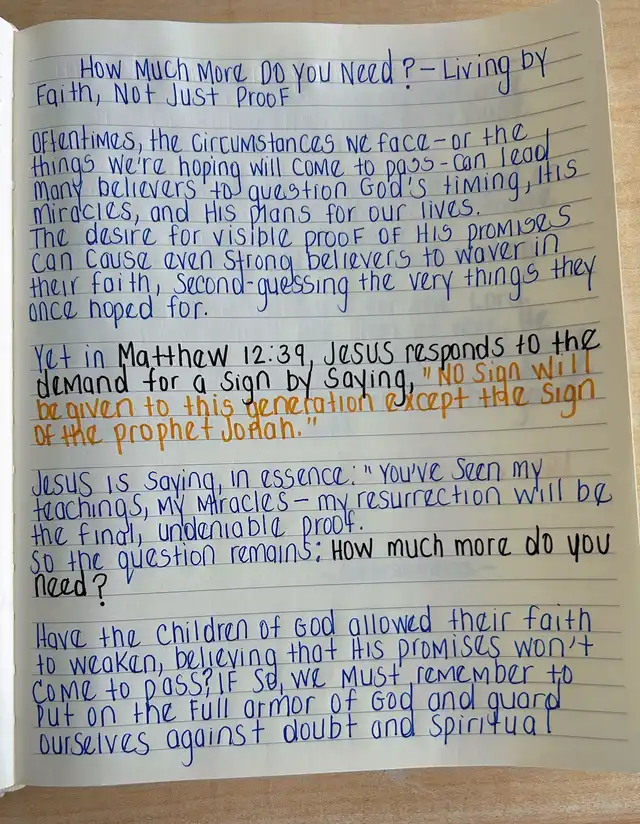 How Much More Do You Need? – Living by
Faith, Not Just Proof
Oftentimes, the circumstances we face – or the
things we're hoping will come to pass – can lead
many believers to question God's timing, His
miracles, and His plans for our lives.
The desire for visible proof of His promises
can cause even strong believers to waver in
their faith, second-guessing the very things they
once hoped for.
Yet in Matthew 12:39, Jesus responds to the
demand for a sign by saying, "No sign will
be given to this generation except the sign
of the prophet Jonah."
Jesus is saying, in essence: "You've seen my
teachings, my miracles – my resurrection will be
the final, undeniable proof.
So the question remains: How much more do you
need?
Have the children of God allowed their faith
to weaken, believing that His promises won't
come to pass? If so, we must remember to
put on the full armor of God and guard
ourselves against doubt and spiritual